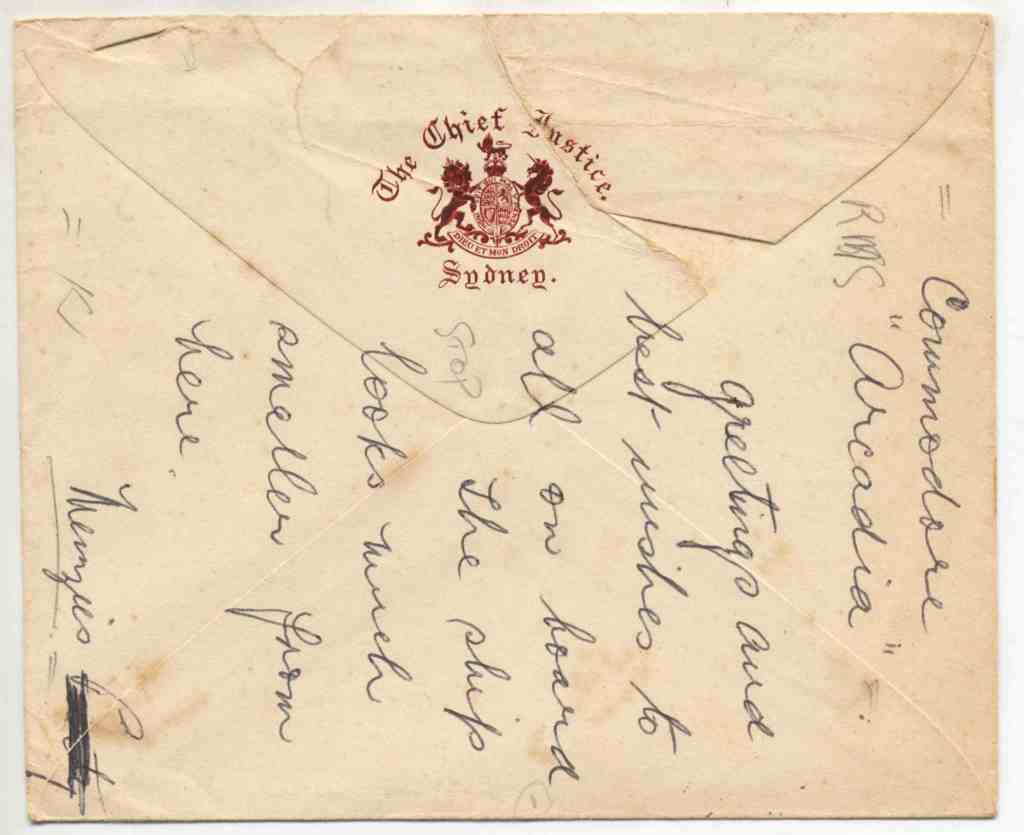 The Chief Justice.
DIEU ET MON DROIT
Sydney.
= Commodore
RMS "Arcadia" =
greetings and
best wishes to
all on board
STOP The ship
looks much
smaller from
here.
= K
Menzies =